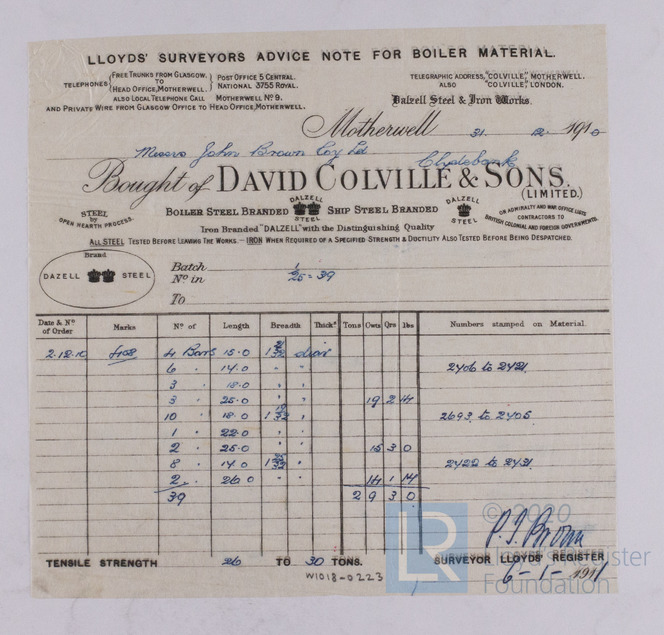 LLOYDS' SURVEYORS ADVICE NOTE FOR BOILER MATERIAL.
TELEPHONES { FREE TRUNKS FROM GLASGOW. TO HEAD OFFICE, MOTHERWELL. } POST OFFICE 5 CENTRAL. NATIONAL 3755 ROYAL.
ALSO LOCAL TELEPHONE CALL MOTHERWELL No 9.
AND PRIVATE WIRE FROM GLASGOW OFFICE TO HEAD OFFICE, MOTHERWELL.
TELEGRAPHIC ADDRESS, "COLVILLE", MOTHERWELL.
ALSO "COLVILLE", LONDON.
Dalzell Steel & Iron Works.
Motherwell 31. 12. 1910
Messrs John Brown Coy Ld Clydebank
Bought of DAVID COLVILLE & SONS.
(LIMITED.)
STEEL by OPEN HEARTH PROCESS.
BOILER STEEL BRANDED DALZELL STEEL SHIP STEEL BRANDED DALZELL STEEL
ON ADMIRALTY AND WAR OFFICE LISTS
CONTRACTORS TO
BRITISH COLONIAL AND FOREIGN GOVERNMENTS.
Iron Branded "DALZELL" with the Distinguishing Quality
ALL STEEL TESTED BEFORE LEAVING THE WORKS. — IRON WHEN REQUIRED OF A SPECIFIED STRENGTH & DUCTILITY ALSO TESTED BEFORE BEING DESPATCHED.
Brand
DAZELL STEEL
Batch
No in 25 = 39
To
Date & No of Order Marks No of Length Breadth Thicks Tons Cwts Qrs lbs Numbers stamped on Material.
2.12.10 4 Bars 15.0 diar
6 14.0 " " 2406 to 2421
3 18.0 " "
3 25.0 " " 19 2 14
10 18.0 1 19/32 " 2693 to 2405
1 22.0 " "
2 25.0 " " 15 3 0
8 14.0 1 25/32 " 2422 to 2431
2 26.0 " " 14 1 14
39 2 9 3 0
© 2020
P. T. Brown
LR Lloyd's Register Foundation
TENSILE STRENGTH 26 TO 30 TONS.
SURVEYOR LLOYDS' REGISTER
W1018-0223
6-1-1911